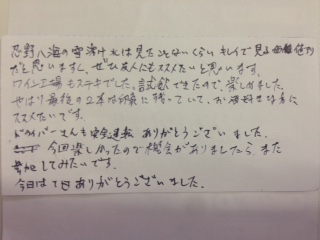 忍野八海の雪溶け水は見たことないくらいキレイで見る価値だ
だと思いますし、ぜひ友人にもススメたいと思います。
ワイン工場もステキでした。試飲できたので、楽しかました。
やはり最後の は印象に残っていて、お 好きな方に
ススメたいです。
ドライバーさんも安全運転ありがとうございました。
今回楽しかったので機会がありましたら、また
参加してみたいです。
今日は1日ありがとうございました。